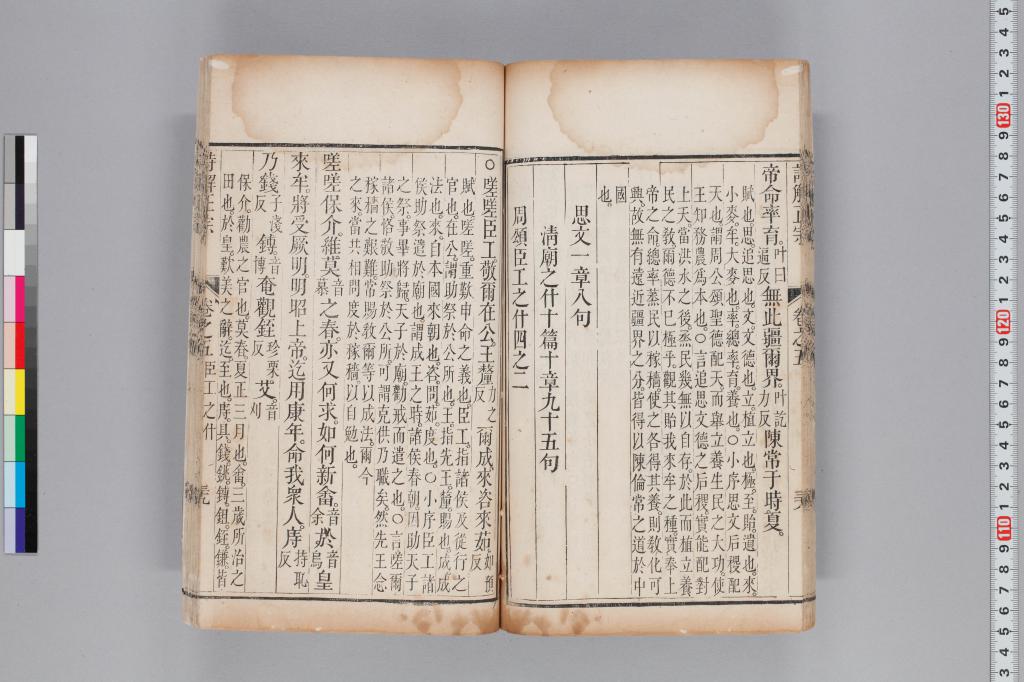 詩解正宗 卷之五 三六
帝命率育叶曰逼反無此疆爾界叶訖力反陳常于時夏
賦也思追思也文文德也立植立也極至貽遺也來
小麥牟大麥也率總率育養也○小序思文后稷配
天也謂周公頌聖德配天而舉立養生民之大功使
王知務農爲本也○言追思文德之后稷實能配對
上天當洪水之後烝民幾無以自存於此而植立養
民之敎爾德不已極乎觀其貽我來牟之種實奉上
帝之命總率蒸民以稼穡使之各得其養則敎化可
興故無有遠近疆界之分皆得以陳倫常之道於中
國也
思文一章八句
淸廟之什十篇十章九十五句
周頌臣工之什四之二
○嗟嗟臣工敬爾在公王釐力之反爾成來咨來茹如預反
賦也嗟嗟重歎申命之義也臣工指諸侯及從行之
官也在公謂助祭於公所也王指先王釐賜也成成
法也來自本國來朝也咨問茹度也○小序臣工諸
侯助祭遣於廟也謂成王之時諸侯春朝因助天子
之祭事畢將歸天子於廟勸戒而遣之也○言嗟爾
諸侯恪敬助祭於公所可謂克供乃職矣然先王念
稼穡之艱難常賜敎爾等以成法爾今
之來當共相問度於稼穡以自勉也
嗟嗟保介維莫音慕之春亦又何求如何新畬音余於音烏皇
來牟將受厥明明昭上帝迄用康年命我衆人庤持恥反
乃錢子淺反鎛音博奄觀銍珍栗反艾音刈
保介勸農之官也莫春夏正三月也畬三歲所治之
田也於皇歎美之辭迄至也庤具錢銚鎛鉏銍鎌皆
詩解正宗 卷之五 臣工之什 三九